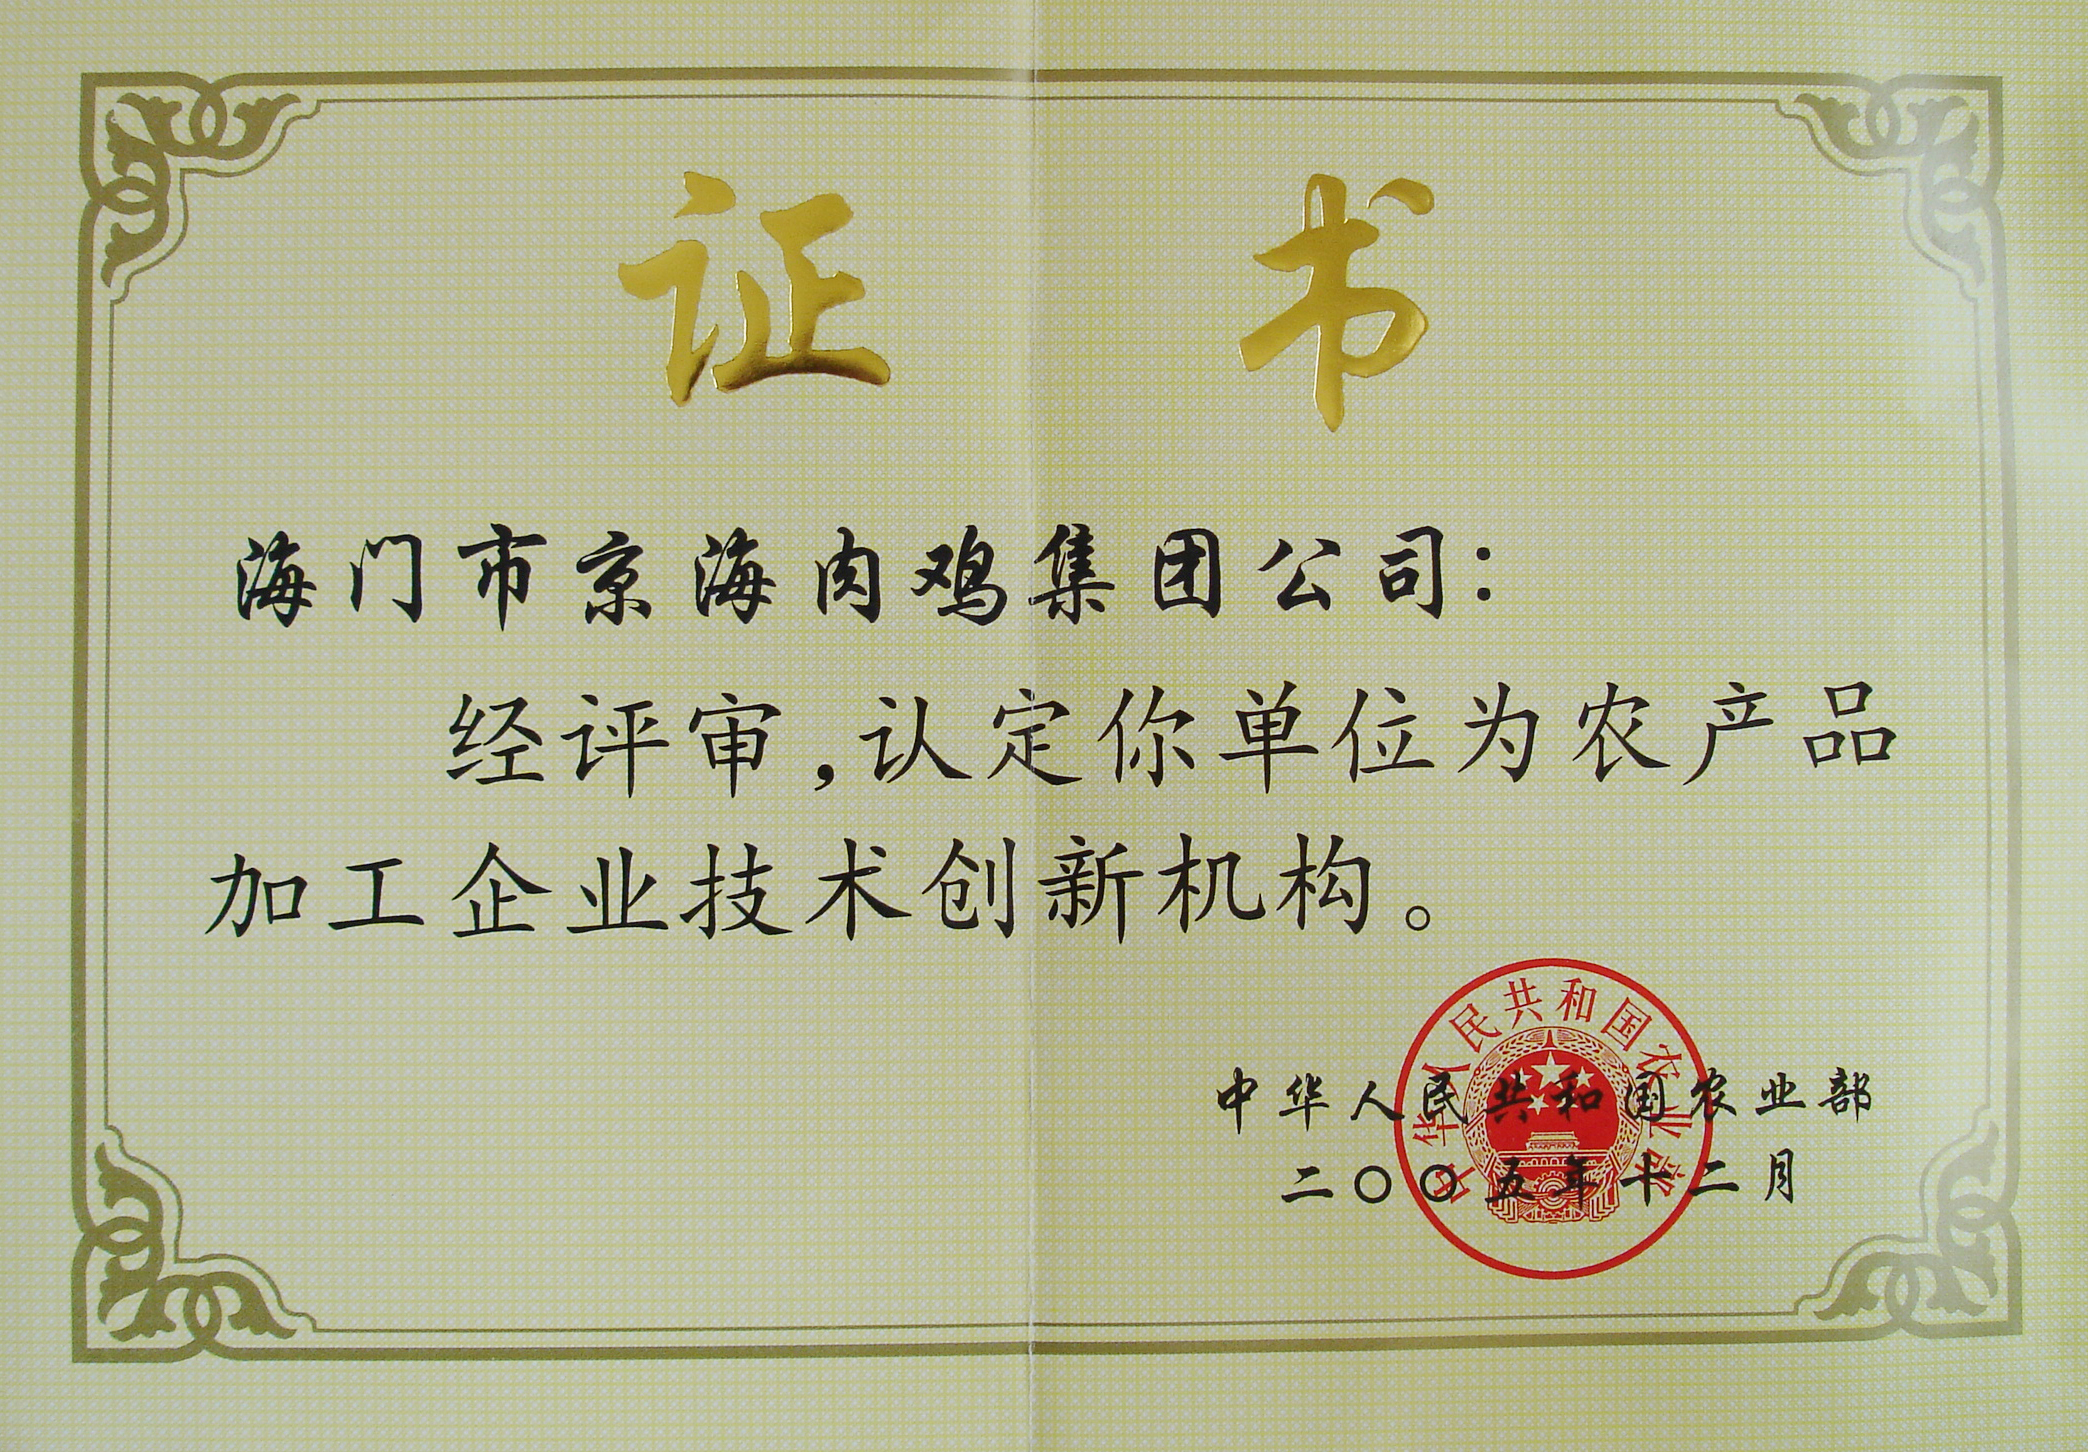 证书
海门市京海肉鸡集团公司：
经评审,认定你单位为农产品
加工企业技术创新机构。
中华人民共和国农业部
中华人民共和国农业部
二〇〇五年十二月